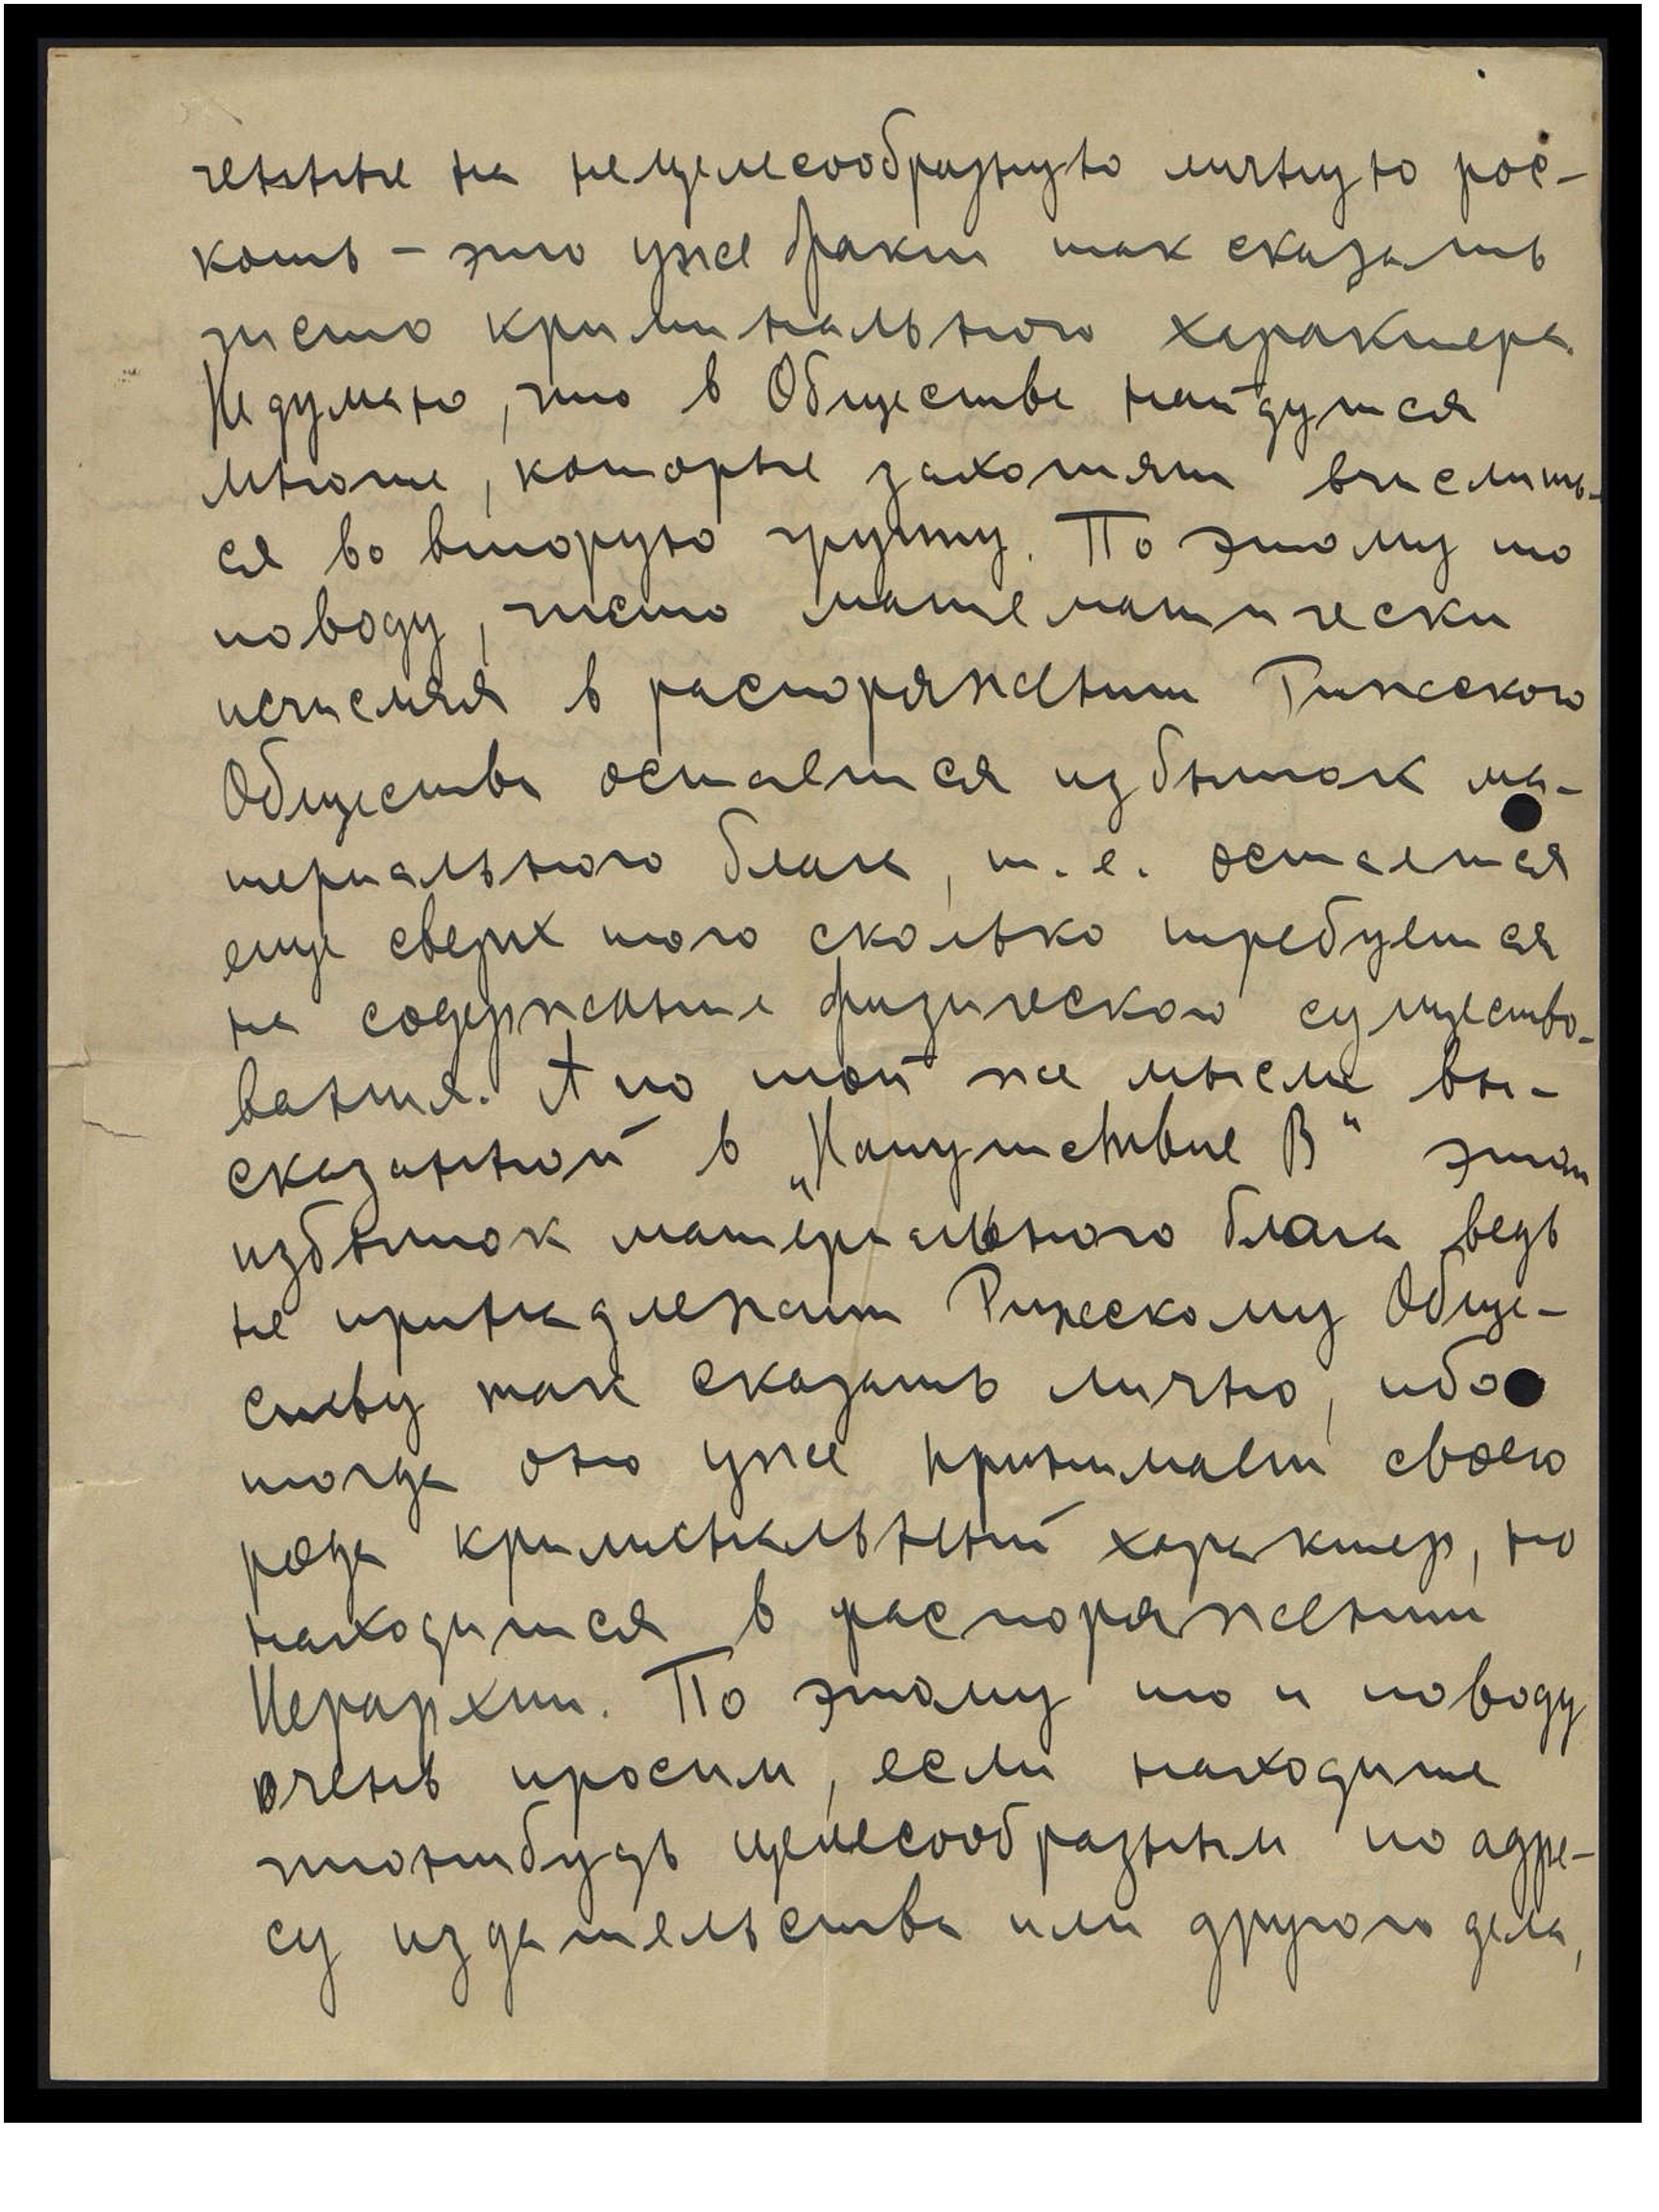 ченные на нецелесообразную личную рос-
кошь – это уже факт так сказать
чисто криминального характера.
Не думаю, что в Обществе найдутся
многие, которые захотят вчислить-
ся во вторую группу. По этому то
поводу, чисто математически
исчисляя в распоряжении Рижского
Общества остается избыток ма-
териального блага, т.е. остается
еще сверх того сколько требуется
на содержание физического существо-
вания. А по той же мысли вы-
сказанной в „Напутствие В“ этот
избыток материального блага ведь
не принадлежит Рижскому Обще-
ству так сказать лично, ибо
тогда оно уже принимает своего
рода криминальный характер, но
находится в распоряжении
Иерархии. По этому то и поводу
очень просим, если находите
чтонибудь целесообразным по адре-
су издательства или другого дела,